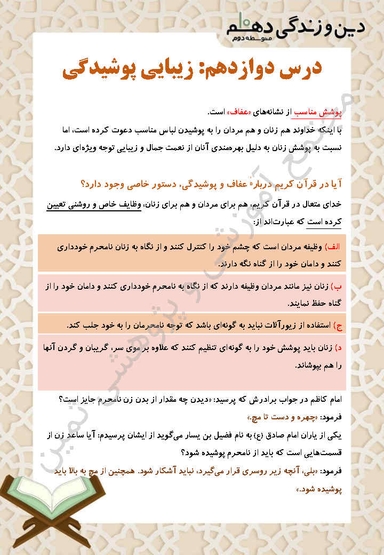 دین و زندگی دهم
متوسطه دوم
درس دوازدهم: زیبایی پوشیدگی
پوشش مناسب از نشانه‌های «عفاف» است.
با اینکه خداوند هم زنان و هم مردان را به پوشیدن لباس مناسب دعوت کرده است، اما
نسبت به پوشش زنان به دلیل بهره‌مندی آنان از نعمت جمال و زیبایی توجه ویژه‌ای دارد.
آیا در قرآن کریم دربارهٔ عفاف و پوشیدگی، دستور خاصی وجود دارد؟
خدای متعال در قرآن کریم، هم برای مردان و هم برای زنان، وظایف خاص و روشنی تعیین
کرده است که عبارت‌اند از:
الف) وظیفه مردان است که چشم خود را کنترل کنند و از نگاه به زنان نامحرم خودداری
کنند و دامان خود را از گناه نگه دارند.
ب) زنان نیز مانند مردان وظیفه دارند که از نگاه به نامحرم خودداری کنند و دامان خود را از
گناه حفظ نمایند.
ج) استفاده از زیورآلات نباید به گونه‌ای باشد که توجه نامحرمان را به خود جلب کند.
د) زنان باید پوشش خود را به گونه‌ای تنظیم کنند که علاوه بر موی سر، گریبان و گردن آنها
را هم بپوشاند.
امام کاظم در جواب برادرش که پرسید: «دیدن چه مقدار از بدن زن نامحرم جایز است؟
فرمود: «چهره و دست تا مچ.»
یکی از یاران امام صادق (ع) به نام فضیل بن یسار می‌گوید از ایشان پرسیدم: آیا ساعد زن از
قسمت‌هایی است که باید از نامحرم پوشیده شود؟
فرمود: «بلی، آنچه زیر روسری قرار می‌گیرد، نباید آشکار شود. همچنین از مچ به بالا باید
پوشیده شود.»